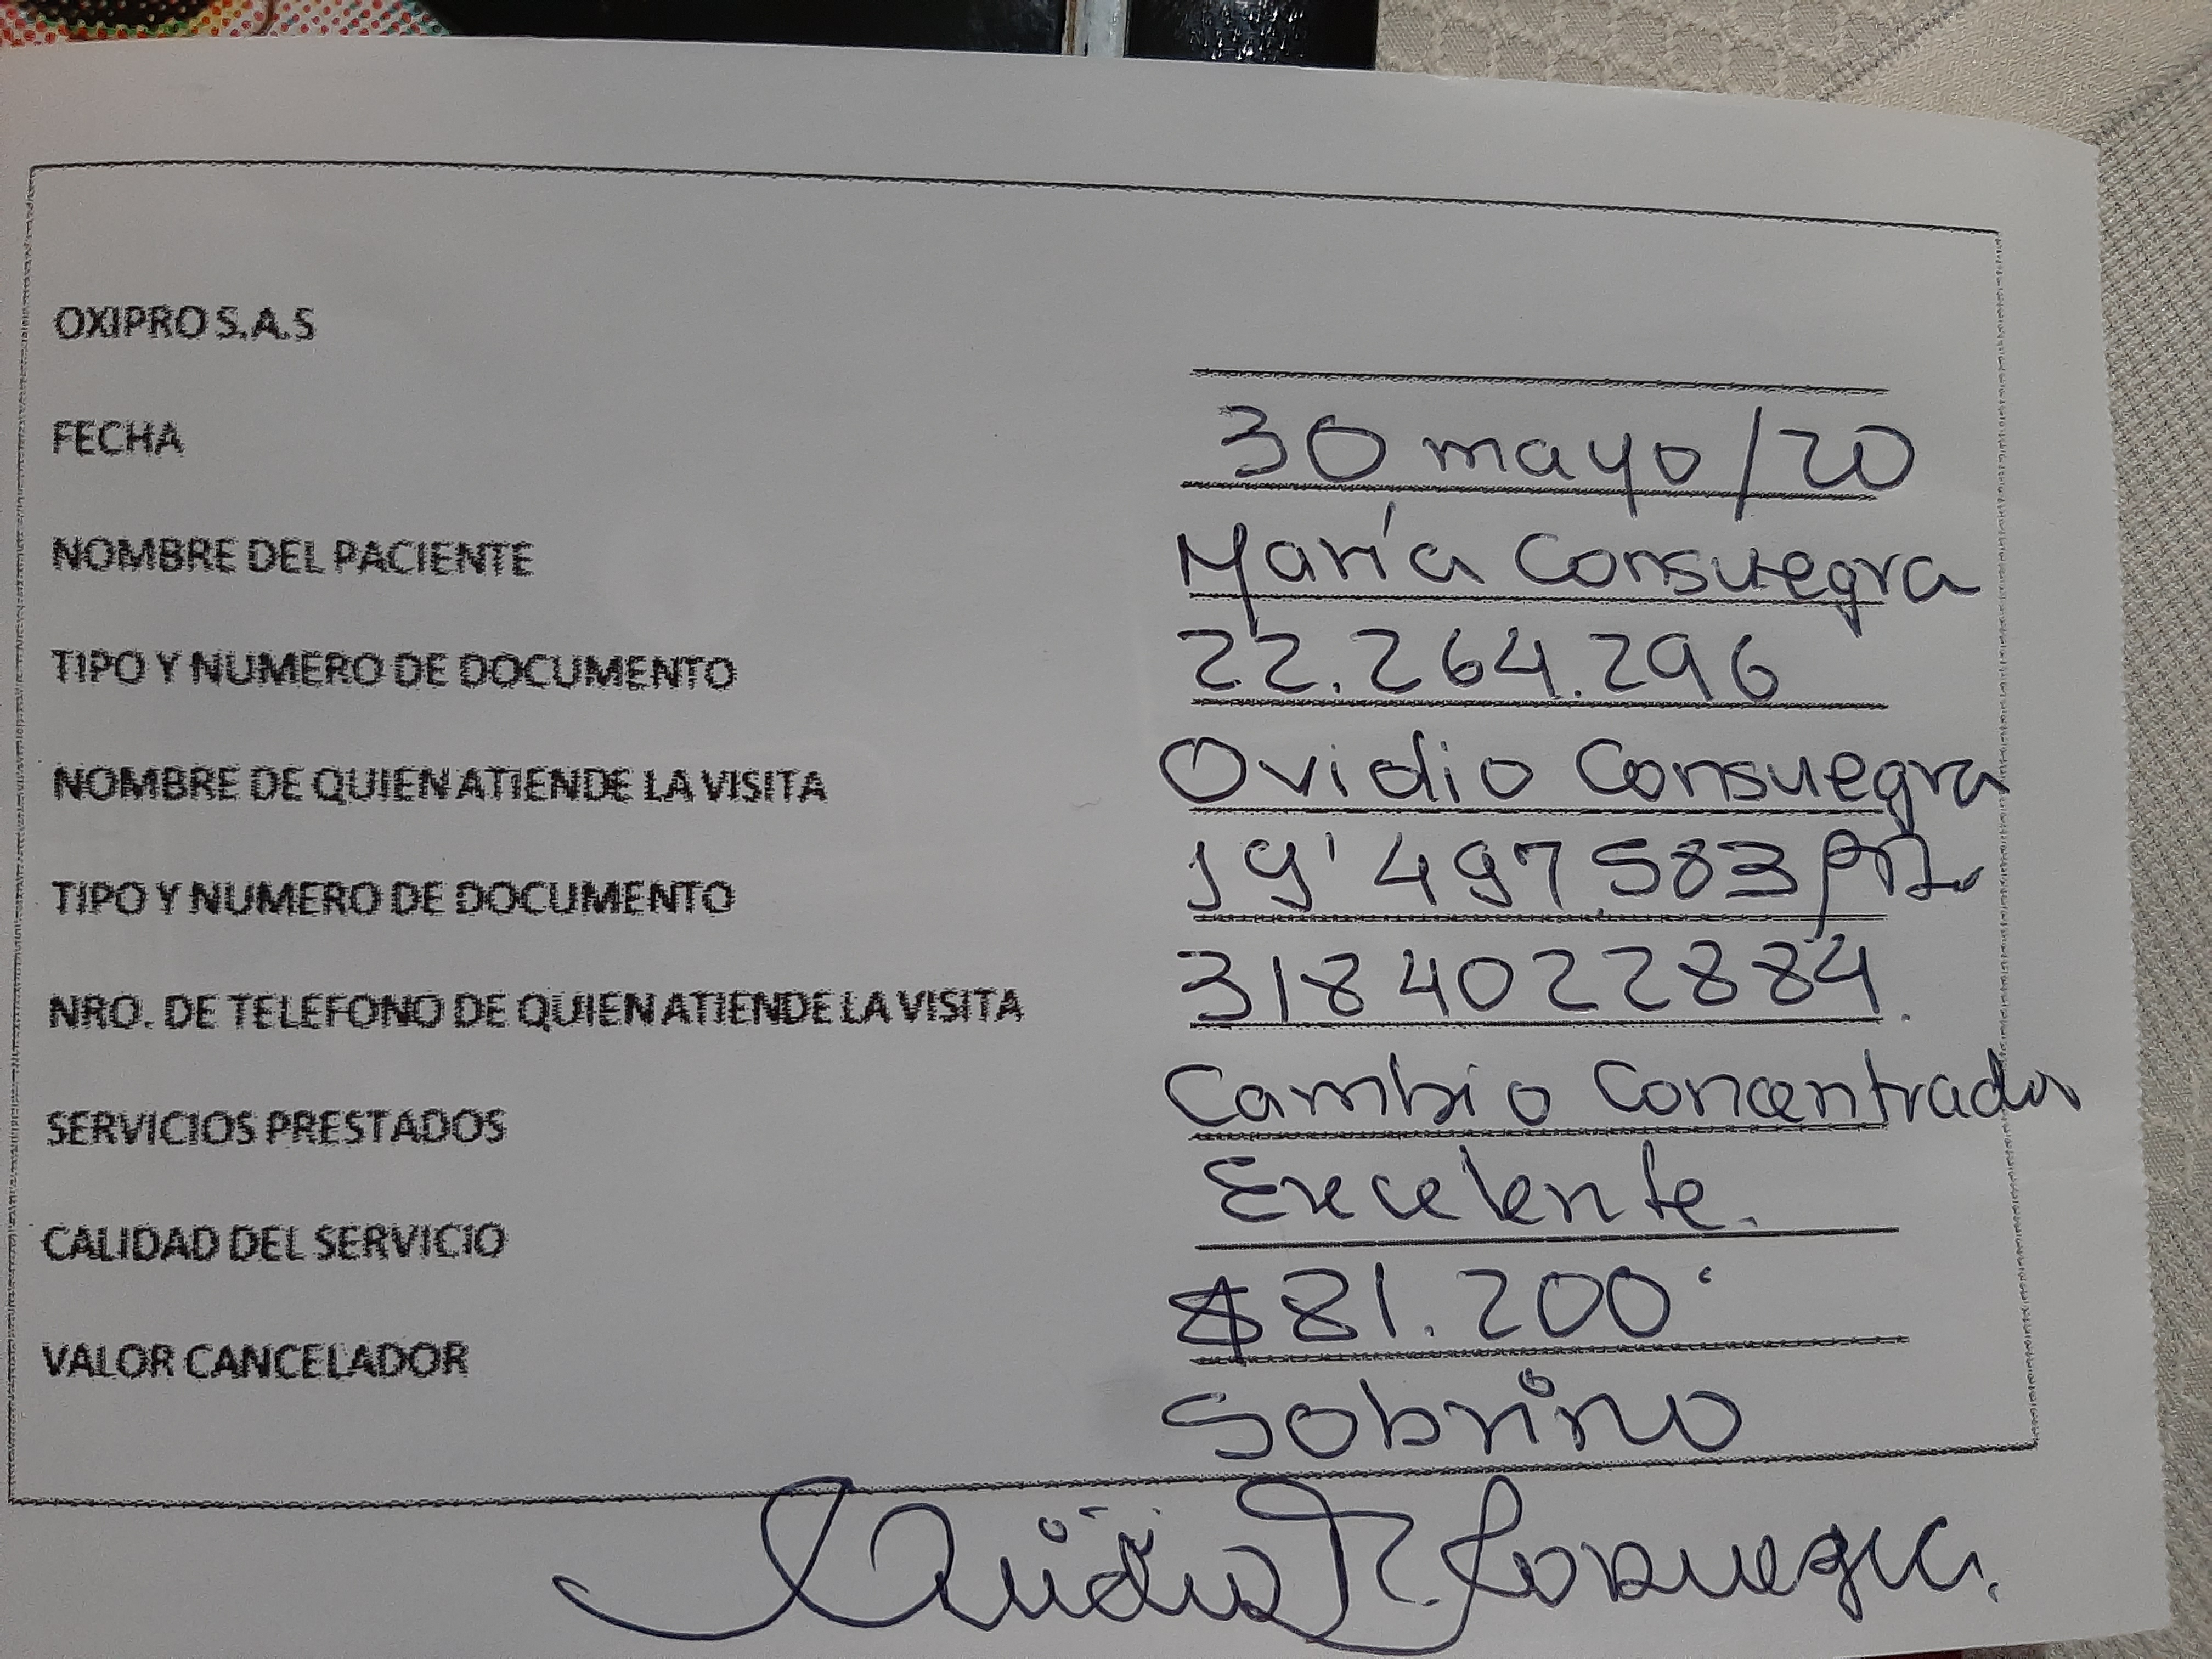 OXIPRO S.A.S
FECHA 30 mayo/20
NOMBRE DEL PACIENTE María Consuegra
TIPO Y NUMERO DE DOCUMENTO 22.264.296
NOMBRE DE QUIEN ATIENDE LA VISITA Ovidio Consuegra
TIPO Y NUMERO DE DOCUMENTO 19'497.583
NRO. DE TELEFONO DE QUIEN ATIENDE LA VISITA 3184022884.
SERVICIOS PRESTADOS Cambio Concentrador
CALIDAD DEL SERVICIO Excelente.
VALOR CANCELADOR $81.200
Sobrino
Ovidio R. Consuegra.